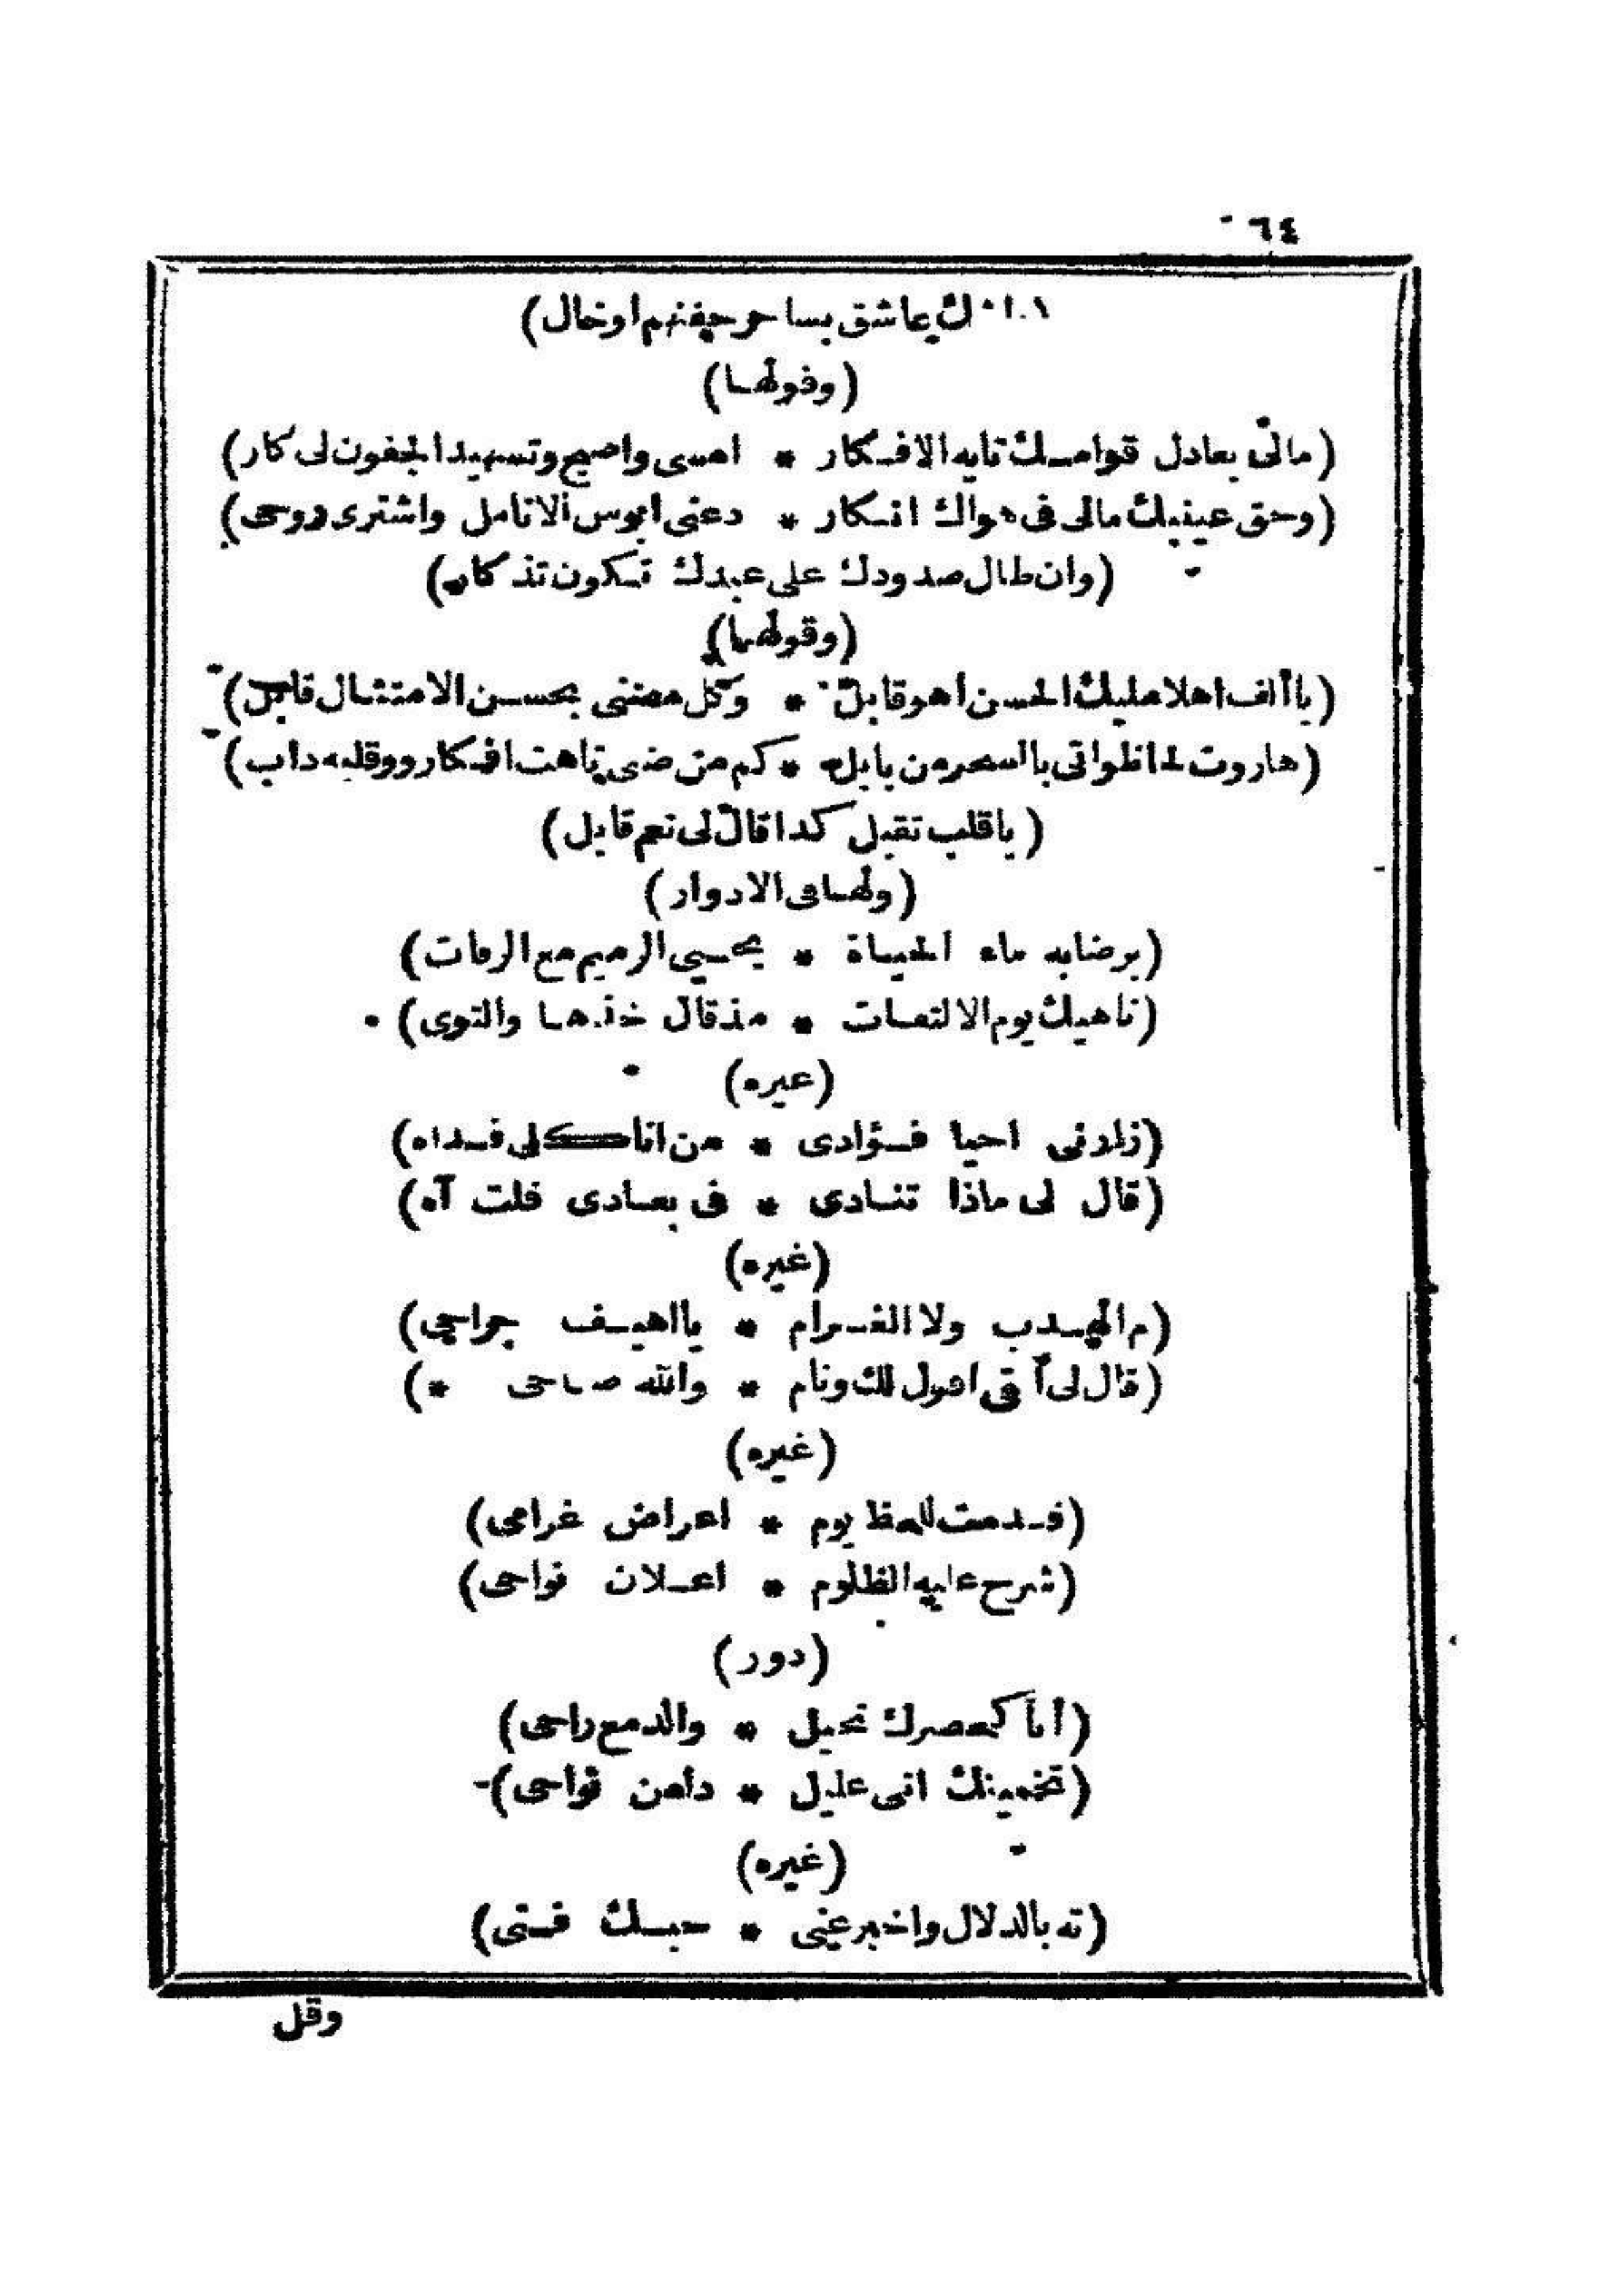 ٦٤
عاشق بساحر جفنهم او خال)
(وقولها)
(مالى بعادل قوامك تايه الافكار * امسى واصبح وتسهيد الجفون لى كار)
(وحق عينيك مالى فى هواك انكار * دعنى ابوس الانامل واشترى روحى)
(وان طال صدودك على عبدك تكون تذكار)
(وقولها)
(يا ألف اهلا مليك الحسن اهو قابل * وكل معنى بحسن الامتثال قابل)
(هاروت لحاظو اتى بالسحر من بابل * كم من ضنى تاهت افكارو وقلبه داب)
(يا قلب تقبل كدا قال لى نعم قابل)
(ولها فى الادوار)
(برضابه ماء الحياة * يحيى الرميم مع الرفات)
(ناهيك يوم الالتفات * مذ قال خذها والتوى)
(غيره)
(زارنى احيا فؤادى * من انا كلى فداه)
(قال لى ماذا تنادى * فى بعادى قلت آه)
(غيره)
(م الهدب ولا الغرام * يا اهيف جراحى)
(قال لى اقول لك ونام * والله صاحى *)
(غيره)
(قدمت للحظ يوم * اعراض غرامى)
(شرح عليه الظلوم * اعلان نواحى)
(دور)
(أنا كخصرك نحيل * والدمع راحى)
(تخمينك انى عليل * دا من نواحى)
(غيره)
(ته بالدلال واخبر عنى * حبك فتى)
وقل